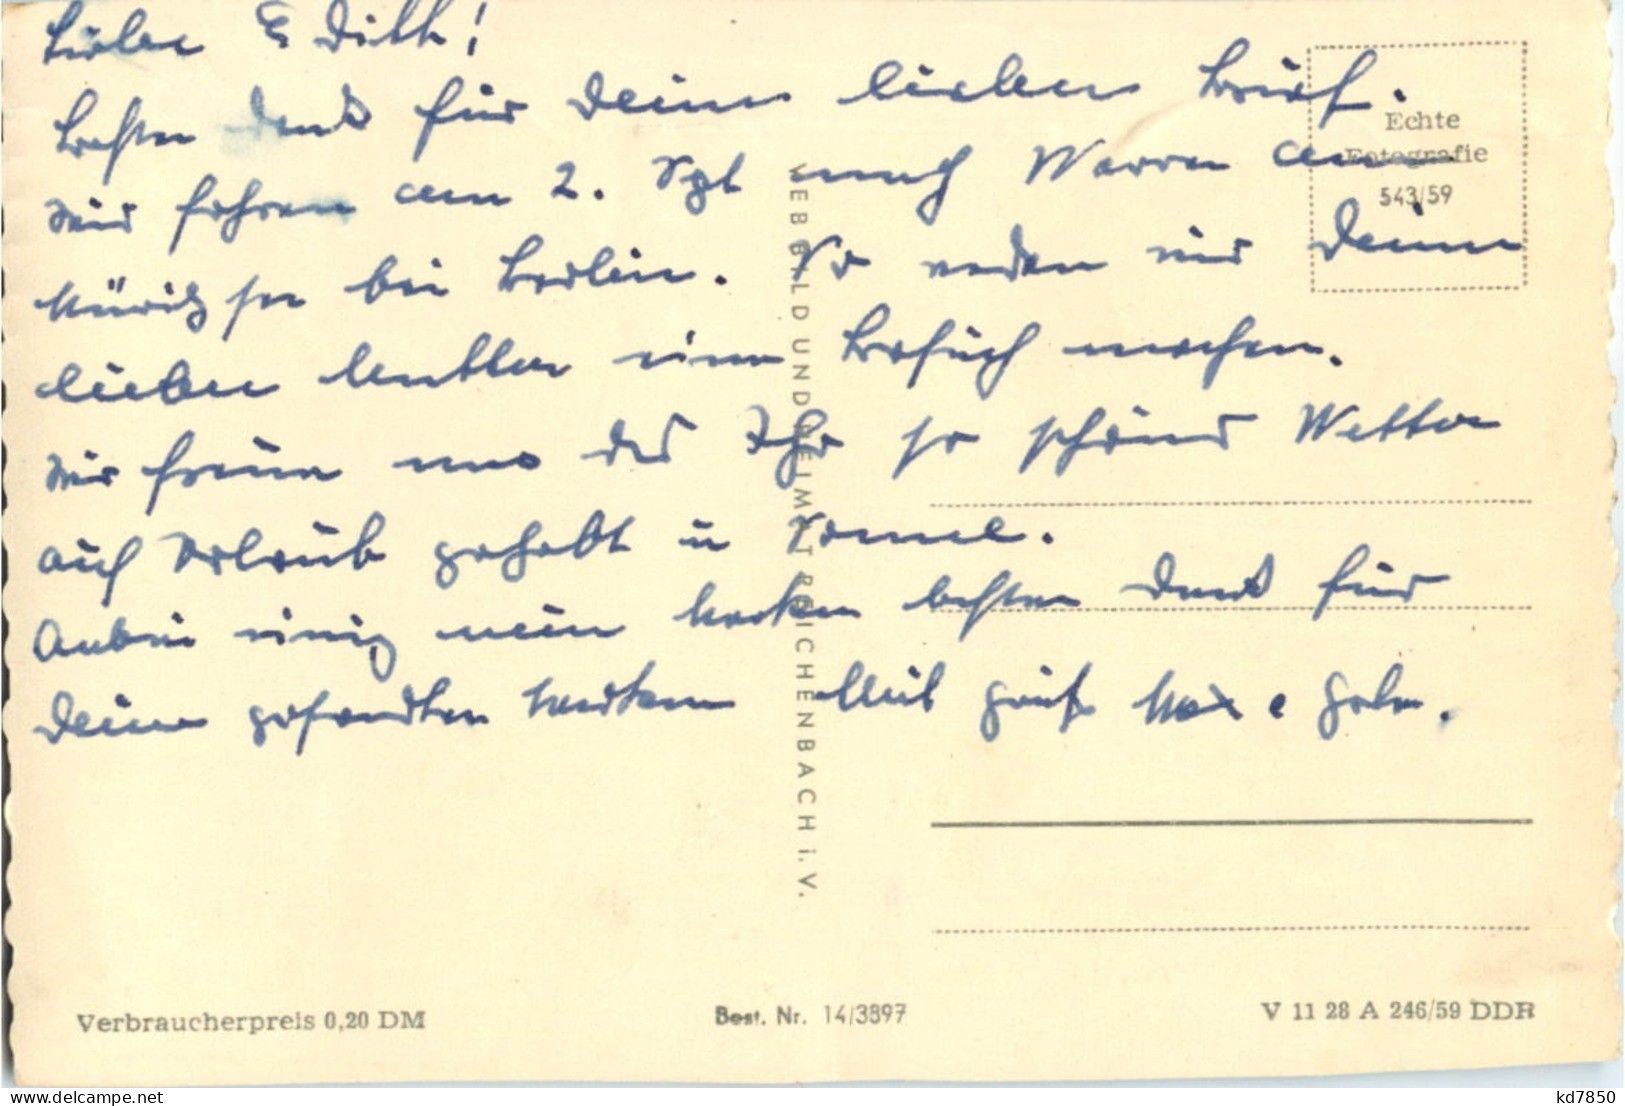 Liebe Edith!
Besten Dank für Deinen lieben Brief.
Wir fahren am 2. Spt nach Waren am
Müritzsee bei Berlin. So werden wir Deinen
lieben Mutter einen Besuch machen.
Wir freuen uns das Ihr so schönes Wetter
auf Urlaub gehabt u Sonne.
Anbei einige neue Marken besten Dank für
Deine gesandten Marken Mit Gruß Max
Echte
Fotografie
543/59
VEB BILD UND HEIMAT REICHENBACH i. V.
Verbraucherpreis 0,20 DM
Best. Nr. 14/3897
V 11 28 A 246/59 DDR
kd7850